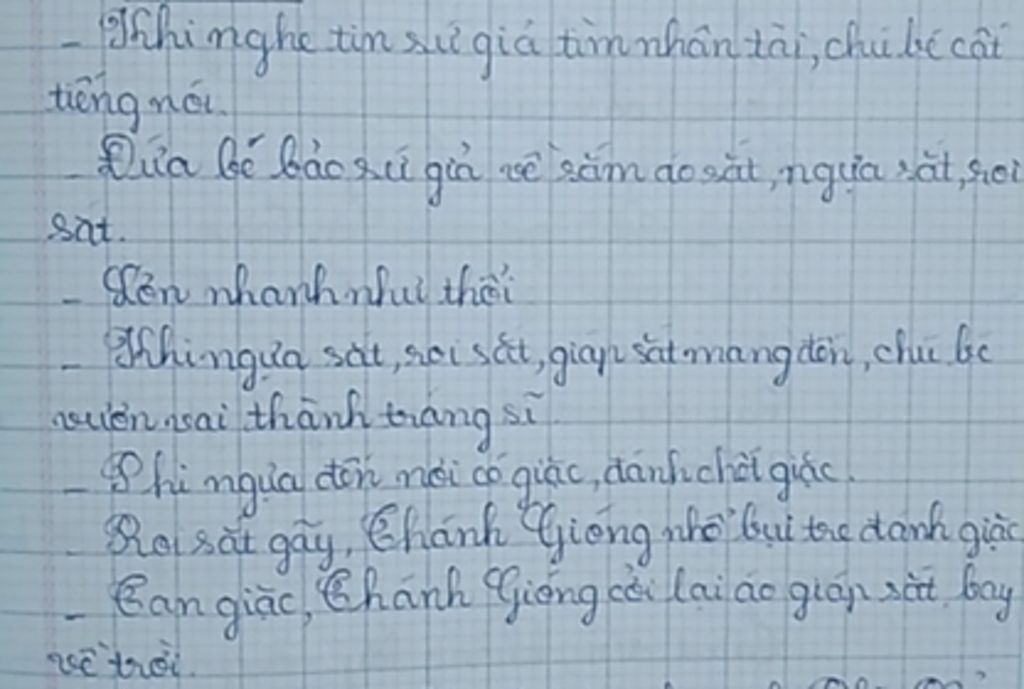 - Khi nghe tin sứ giả tìm nhân tài, chú bé cất
tiếng nói.
- Đứa bé bảo sứ giả về sắm áo sắt, ngựa sắt, roi
sắt.
- Lớn nhanh như thổi
- Khi ngựa sắt, roi sắt, giáp sắt mang đến, chú bé
vươn vai thành tráng sĩ
- Phi ngựa đến nơi có giặc, đánh chết giặc.
- Roi sắt gãy, Thánh Gióng nhổ bụi tre đánh giặc
- Tan giặc, Thánh Gióng cởi lại áo giáp sắt bay
về trời.